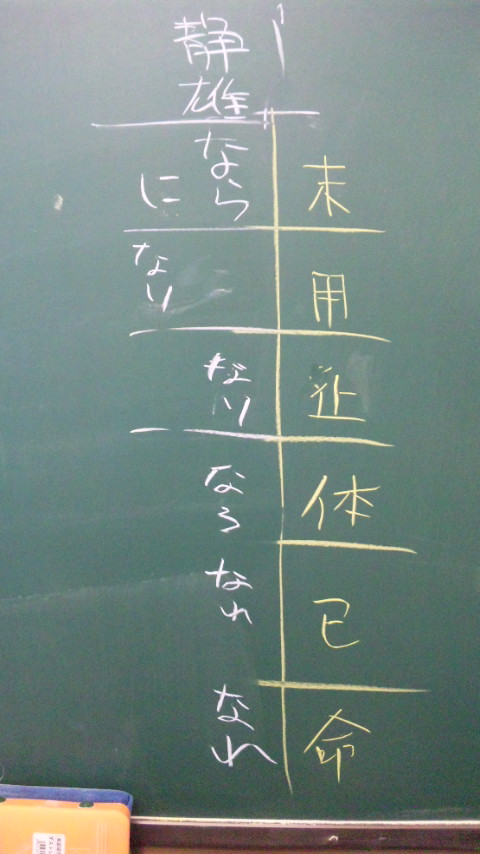 未
用
止
体
已
命
静雄
なら
に
なり
なり
なる
なれ
なれ